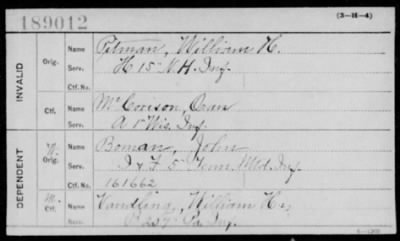 189012 (3-H-4)
INVALID
Orig. Name Pitman, William H.
Serv. H 15" N.H. Inf.
Ctf. No.
Ctf. Name McCorison, Oran
Serv. A 1" Wis. Inf.
DEPENDENT
W. Orig. Name Boman, John
Serv. I & F 5" Tenn. Mtd. Inf.
Ctf. No. 161662
M. Ctf. Name Vandling, William H.,
Serv. 207" Pa. Inf.